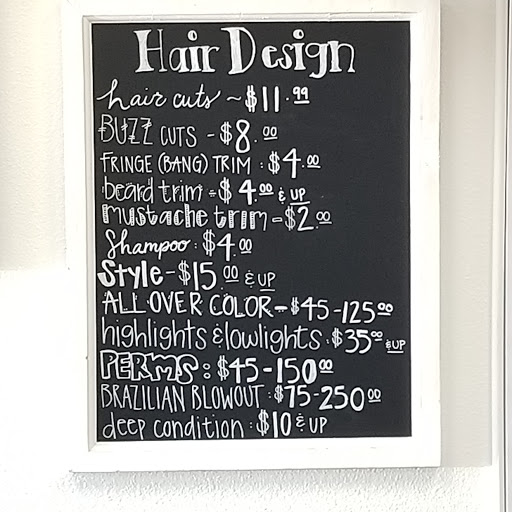 Hair Design
hair cuts ~ $11.99
BUZZ CUTS - $8.00
FRINGE (BANG) TRIM : $4.00
beard trim - $4.00 & UP
mustache trim - $2.00
Shampoo : $4.00
Style - $15.00 & UP
ALL OVER COLOR - $45-125⁰⁰
highlights & lowlights : $35⁰⁰ & UP
PERMS : $45-150⁰⁰
BRAZILIAN BLOWOUT : $75-250⁰⁰
deep condition : $10 & UP